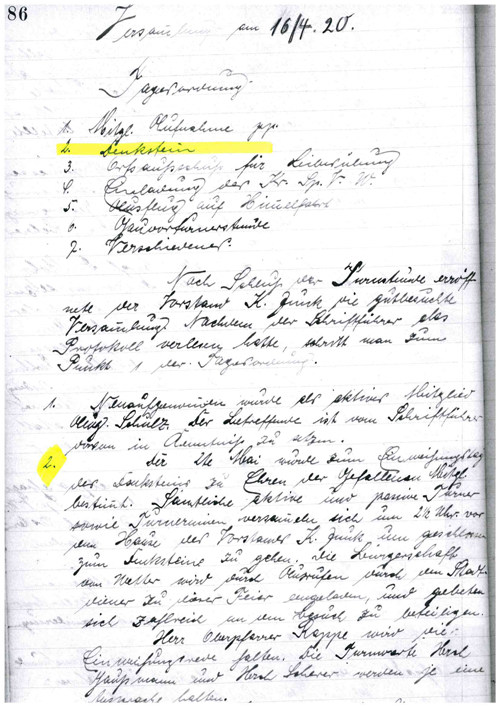 86
Versammlung am 16/4. 20.
Tagesordnung
1. Mitgl. Aufnahme pp.
2. Denkstein
3. Ortsausschuß für Leibesübung
4. Einladung des Kr. Sp. V. W.
5. Ausflug auf Himmelfahrt
6. Gauvorturnerstunde
7. Verschiedenes.
Nach Schluß der Turnstunde eröff-
nete der Vorstand K. Junck die gutbesuchte
Versammlung. Nachdem der Schriftführer das
Protokoll verlesen hatte, schritt man zum
Punkt 1 der Tagesordnung.
1. Neuaufgenommen wurde als aktives Mitglied
Aug. Schulz. Der Betreffende ist vom Schriftführer
davon in Kenntniß zu setzen.
2. Der 2te Mai wurde zum Einweihungstag
des Denksteins zu Ehren der Gefallenen Mitgl.
bestimmt. Sämtliche aktive und passive Turner
sowie Turnerinnen versammeln sich um 2½ Uhr vor
dem Hause des Vorstandes K. Junck um geschlossen
zum Denksteine zu gehen. Die Bürgerschaft
von Wetter wird durch Ausrufen durch den Stadt
diener zu dieser Feier eingeladen, und gebeten
sich zahlreich an dem Besuch zu beteiligen.
Herr Oberpfarrer Kappe wird die
Einweihungsrede halten. Die Turnwarte Herch
Haußmann und Herch Scherer werden je eine
halten.